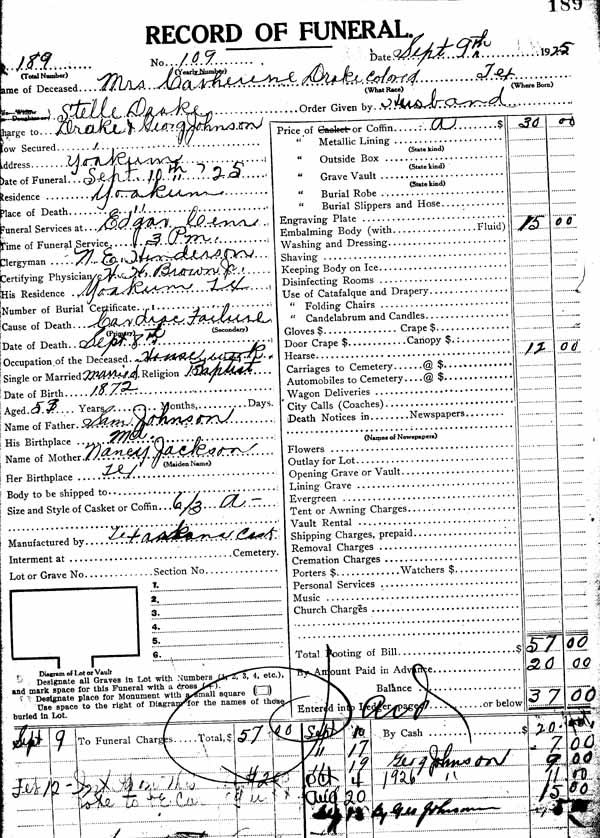 189
RECORD OF FUNERAL.
189 No. 109 Date Sept 9th 1925
(Total Number) (Yearly Number)
Name of Deceased Mrs Catherine Drake Colored Tex
(What Race) (Where Born)
Stelle Drake Order Given by Husband
Charge to Drake & Geo Johnson
How Secured
Address Yoakum
Date of Funeral Sept 10th '25
Residence Yoakum
Place of Death "
Funeral Services at Edgar Cem
Time of Funeral Service 3 P.m.
Clergyman N. E. Henderson
Certifying Physician H. H. Brown Jr.
His Residence Yoakum Tex
Number of Burial Certificate
Cause of Death Cardiac Failure
(Primary) (Secondary)
Date of Death Sept 8th
Occupation of the Deceased Housework
Single or Married Married Religion Baptist
Date of Birth 1872
Aged 53 Years Months, Days.
Name of Father Sam Johnson
His Birthplace
Name of Mother Nancy Jackson
(Maiden Name)
Her Birthplace
Body to be shipped to
Size and Style of Casket or Coffin 6/3 a -
Manufactured by Texarkana Cask
Interment at Cemetery.
Lot or Grave No. Section No.
1.
2.
3.
4.
5.
6.
Diagram of Lot or Vault
Designate all Graves in Lot with Numbers (1, 2, 3, 4, etc.),
and mark space for this Funeral with a cross
Designate place for Monument with a small square
Use space to the right of Diagram for the names of those
buried in Lot.
Price of Casket or Coffin a $ 30 00
" Metallic Lining
(State kind)
" Outside Box
(State kind)
" Grave Vault
(State kind)
" Burial Robe
" Burial Slippers and Hose
Engraving Plate
Embalming Body (with Fluid) 15 00
Washing and Dressing
Shaving
Keeping Body on Ice
Disinfecting Rooms
Use of Catafalque and Drapery
" Folding Chairs
" Candelabrum and Candles
Gloves $ Crape $
Door Crape $ Canopy $
Hearse 12 00
Carriages to Cemetery @ $
Automobiles to Cemetery @ $
Wagon Deliveries
City Calls (Coaches)
Death Notices in Newspapers
(Names of Newspapers)
Flowers
Outlay for Lot
Opening Grave or Vault
Lining Grave
Evergreen
Tent or Awning Charges
Vault Rental
Shipping Charges, prepaid
Removal Charges
Cremation Charges
Porters $ Watchers $
Personal Services
Music
Church Charges
Total Footing of Bill $ 57 00
By Amount Paid in Advance 20 00
Balance 37 00
Entered into Ledger, page or below
Sept 9 To Funeral Charges Total, $ 57 00 Sept 10 By Cash $ 20
" 17 7 00
" 19 Geo Johnson 9 00
Oct 4 1926 " 11 00
Aug 20 15 00
By Geo Johnson